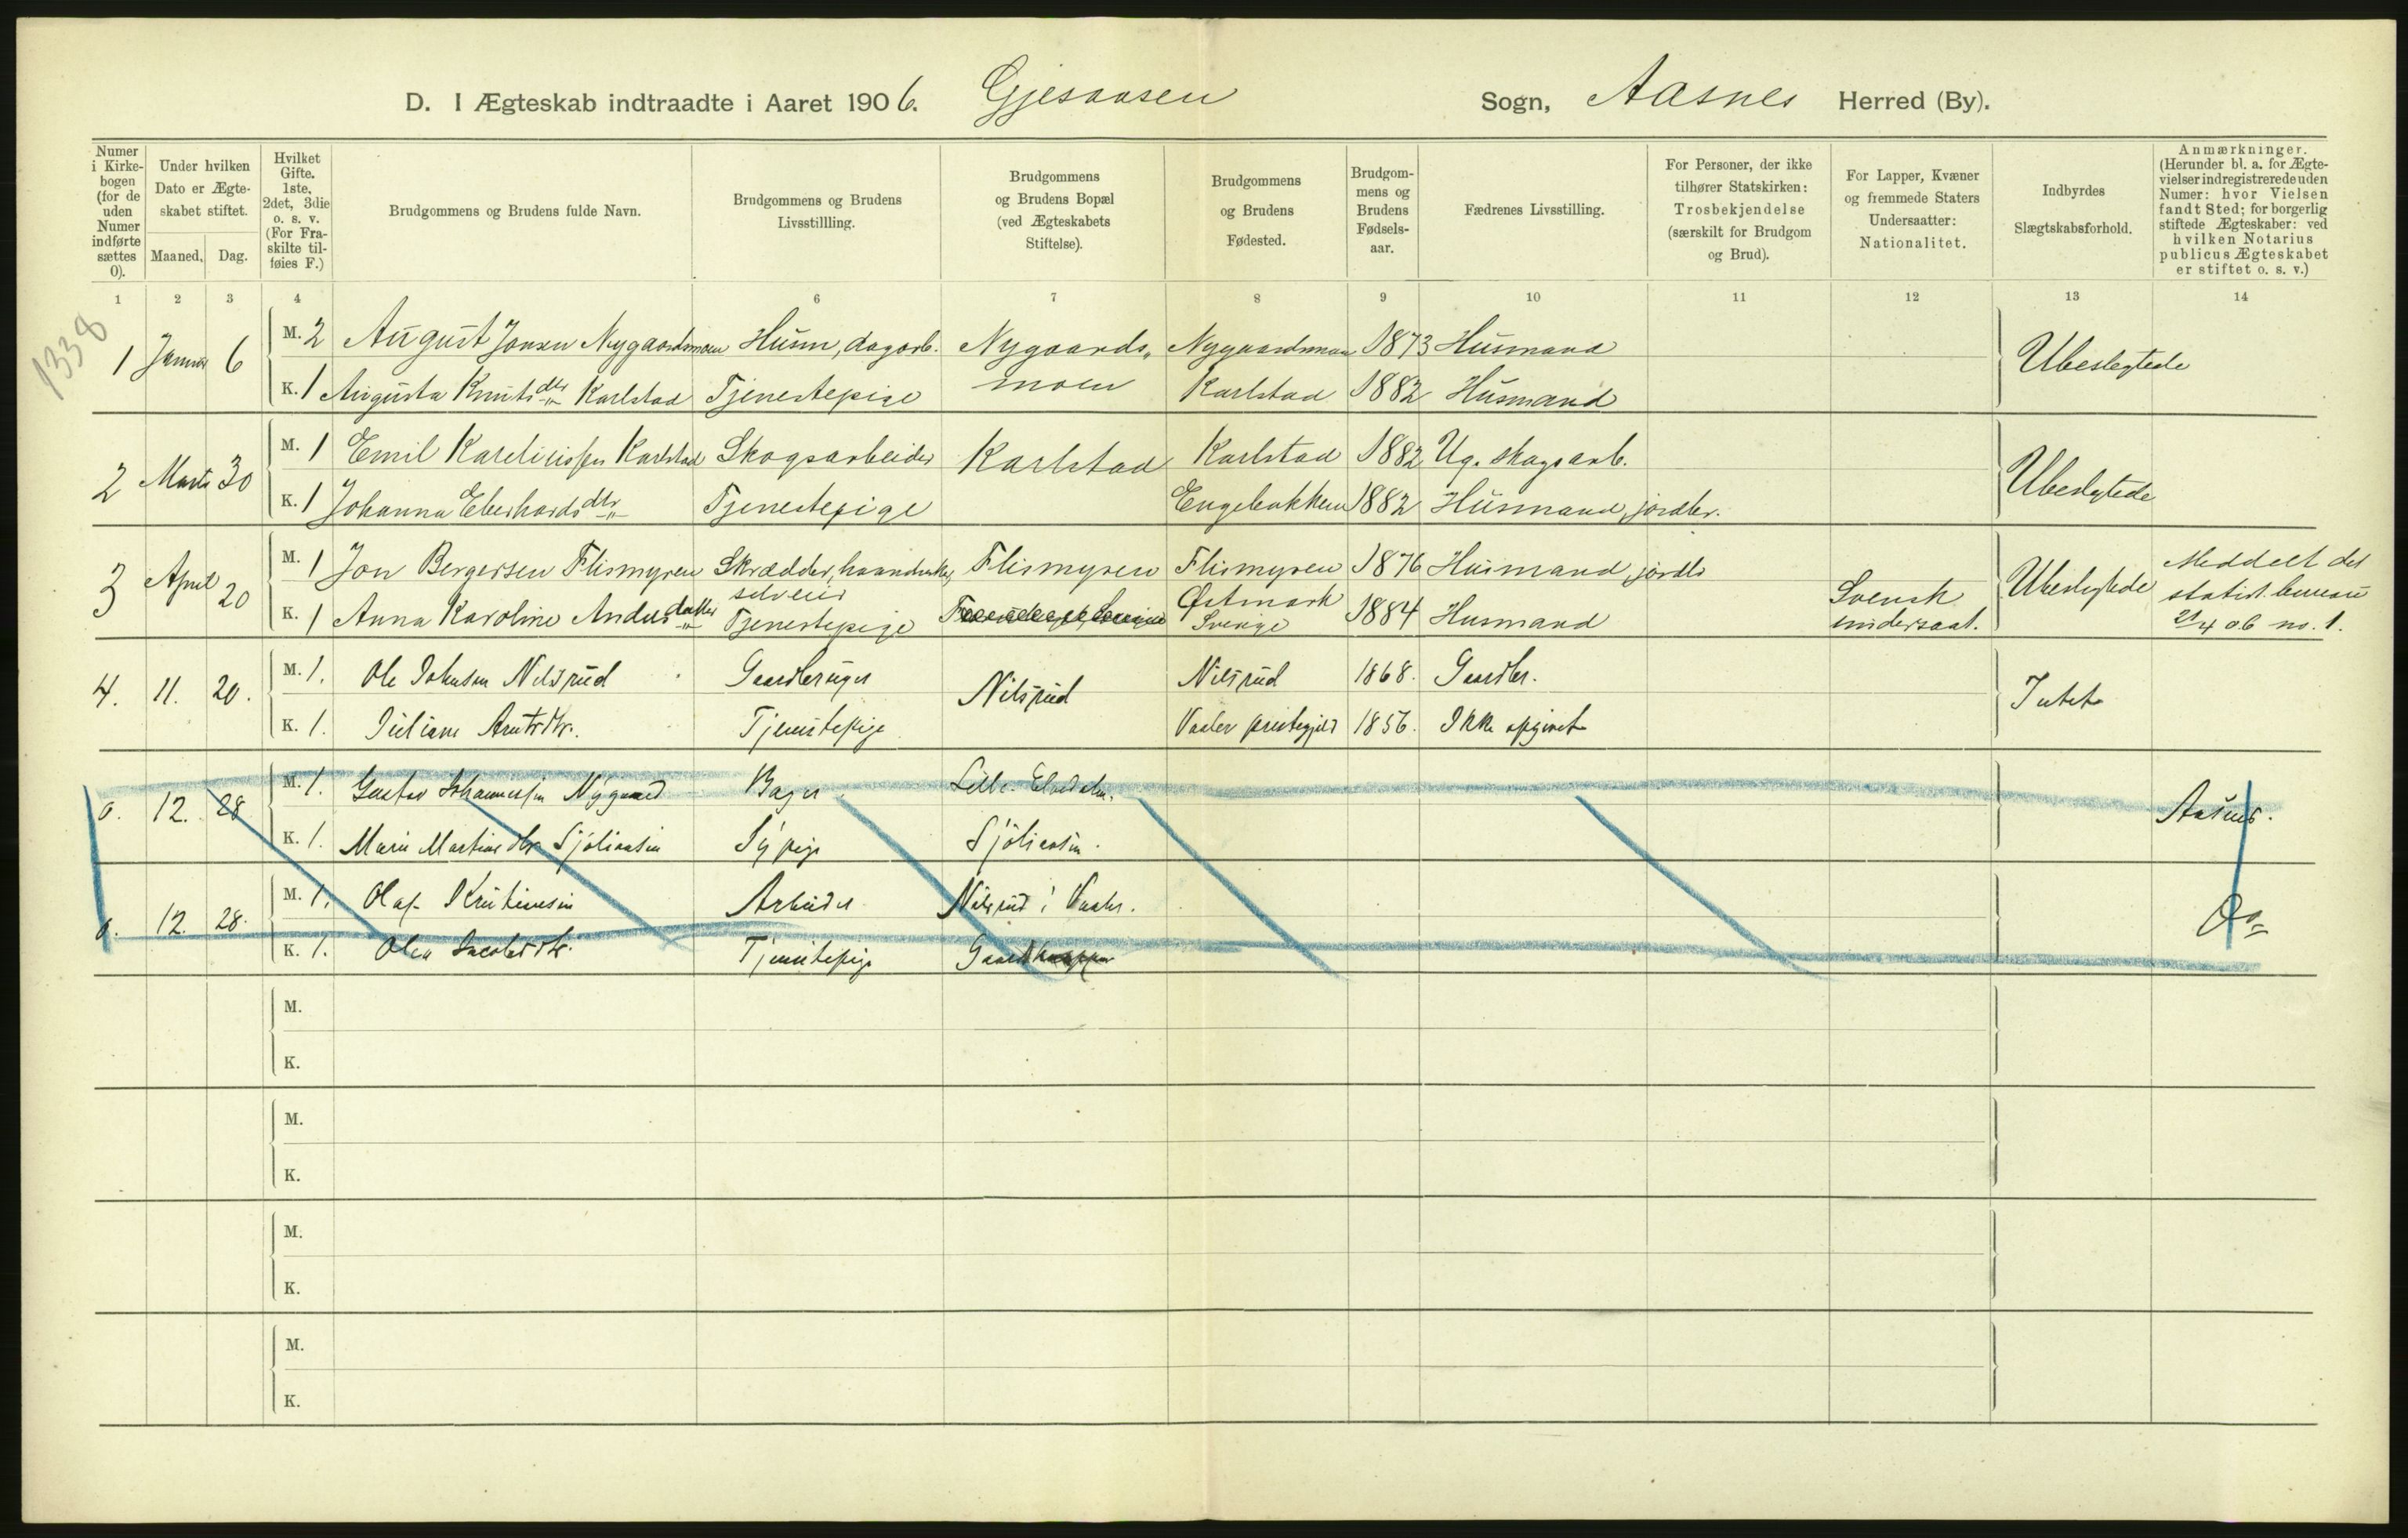 D. I Ægteskab indtraadte i Aaret 1906. Gjesaasen Sogn, Aasnes Herred (By).
Numer i Kirkebogen (for de uden Numer indførte sættes 0).
Under hvilken Dato er Ægteskabet stiftet.
Maaned. Dag.
Hvilket Gifte. 1ste, 2det, 3die o. s. v. (For Fraskilte tilføies F.)
Brudgommens og Brudens fulde Navn.
Brudgommens og Brudens Livsstillling.
Brudgommens og Brudens Bopæl (ved Ægteskabets Stiftelse).
Brudgommens og Brudens Fødested.
Brudgommens og Brudens Fødselsaar.
Fædrenes Livsstilling.
For Personer, der ikke tilhører Statskirken: Trosbekjendelse (særskilt for Brudgom og Brud).
For Lapper, Kvæner og fremmede Staters Undersaatter: Nationalitet.
Indbyrdes Slægtskabsforhold.
Anmærkninger. (Herunder bl. a. for Ægtevielser indregistrerede uden Numer: hvor Vielsen fandt Sted; for borgerlig stiftede Ægteskaber: ved hvilken Notarius publicus Ægteskabet er stiftet o. s. v.)
1 2 3 4 6 7 8 9 10 11 12 13 14
1338
1 Januar 6 M. 2 August Jonsen Nygaardsmoen Husm, dagarb. Nygaards„ Nygaardsmoen 1873 Husmand Ubeslegtede
K. 1 Augusta Knuts dtr Karlstad Tjenestepige moen Karlstad 1882 Husmand
2 Marts 30 M. 1 Emil Karelinissen Karlstad Skogsarbeider Karlstad Karlstad 1882 Ug. skogsarb. Ubeslegtede
K. 1 Johanna Eberhards dtr Tjenestepige Engebakken 1882 Husmand, jordbr.
3 April 20 M. 1 Jon Bergersen Flismyren Skrædder, haandverker, selveier Flismyren Flismyren 1876 Husmand, jordb Ubeslegtede Meddelt det
K. 1 Anna Karoline Anders datter Tjenestepige Østmark Sverige 1884 Husmand Svensk undersaat. statist. bureau 21/4 06 no. 1.
4. 11. 20. M. 1. Ole Johnsen Nilsrud Gaardbruger Nilsrud Nilsrud 1868. Gaardbr. Intet
K. 1. Juliane Arntsdtr. Tjenestepige Vaaler prestegjeld 1856. Ikke opgivet
0. 12. 28 M. 1. Gustav Johannessen Nygaard Bager Lille Elvedalen. Aasnes.
K. 1. Marie Martinsdtr Sjøliaasen Sypige Sjøliaasen.
0. 12. 28. M. 1. Olaf Kristiansen Arbeider Nilsrud i Vaaler. Do
K. 1. Olea Jacobsdtr. Tjenestepige
M.
K.
M.
K.
M.
K.
M.
K.